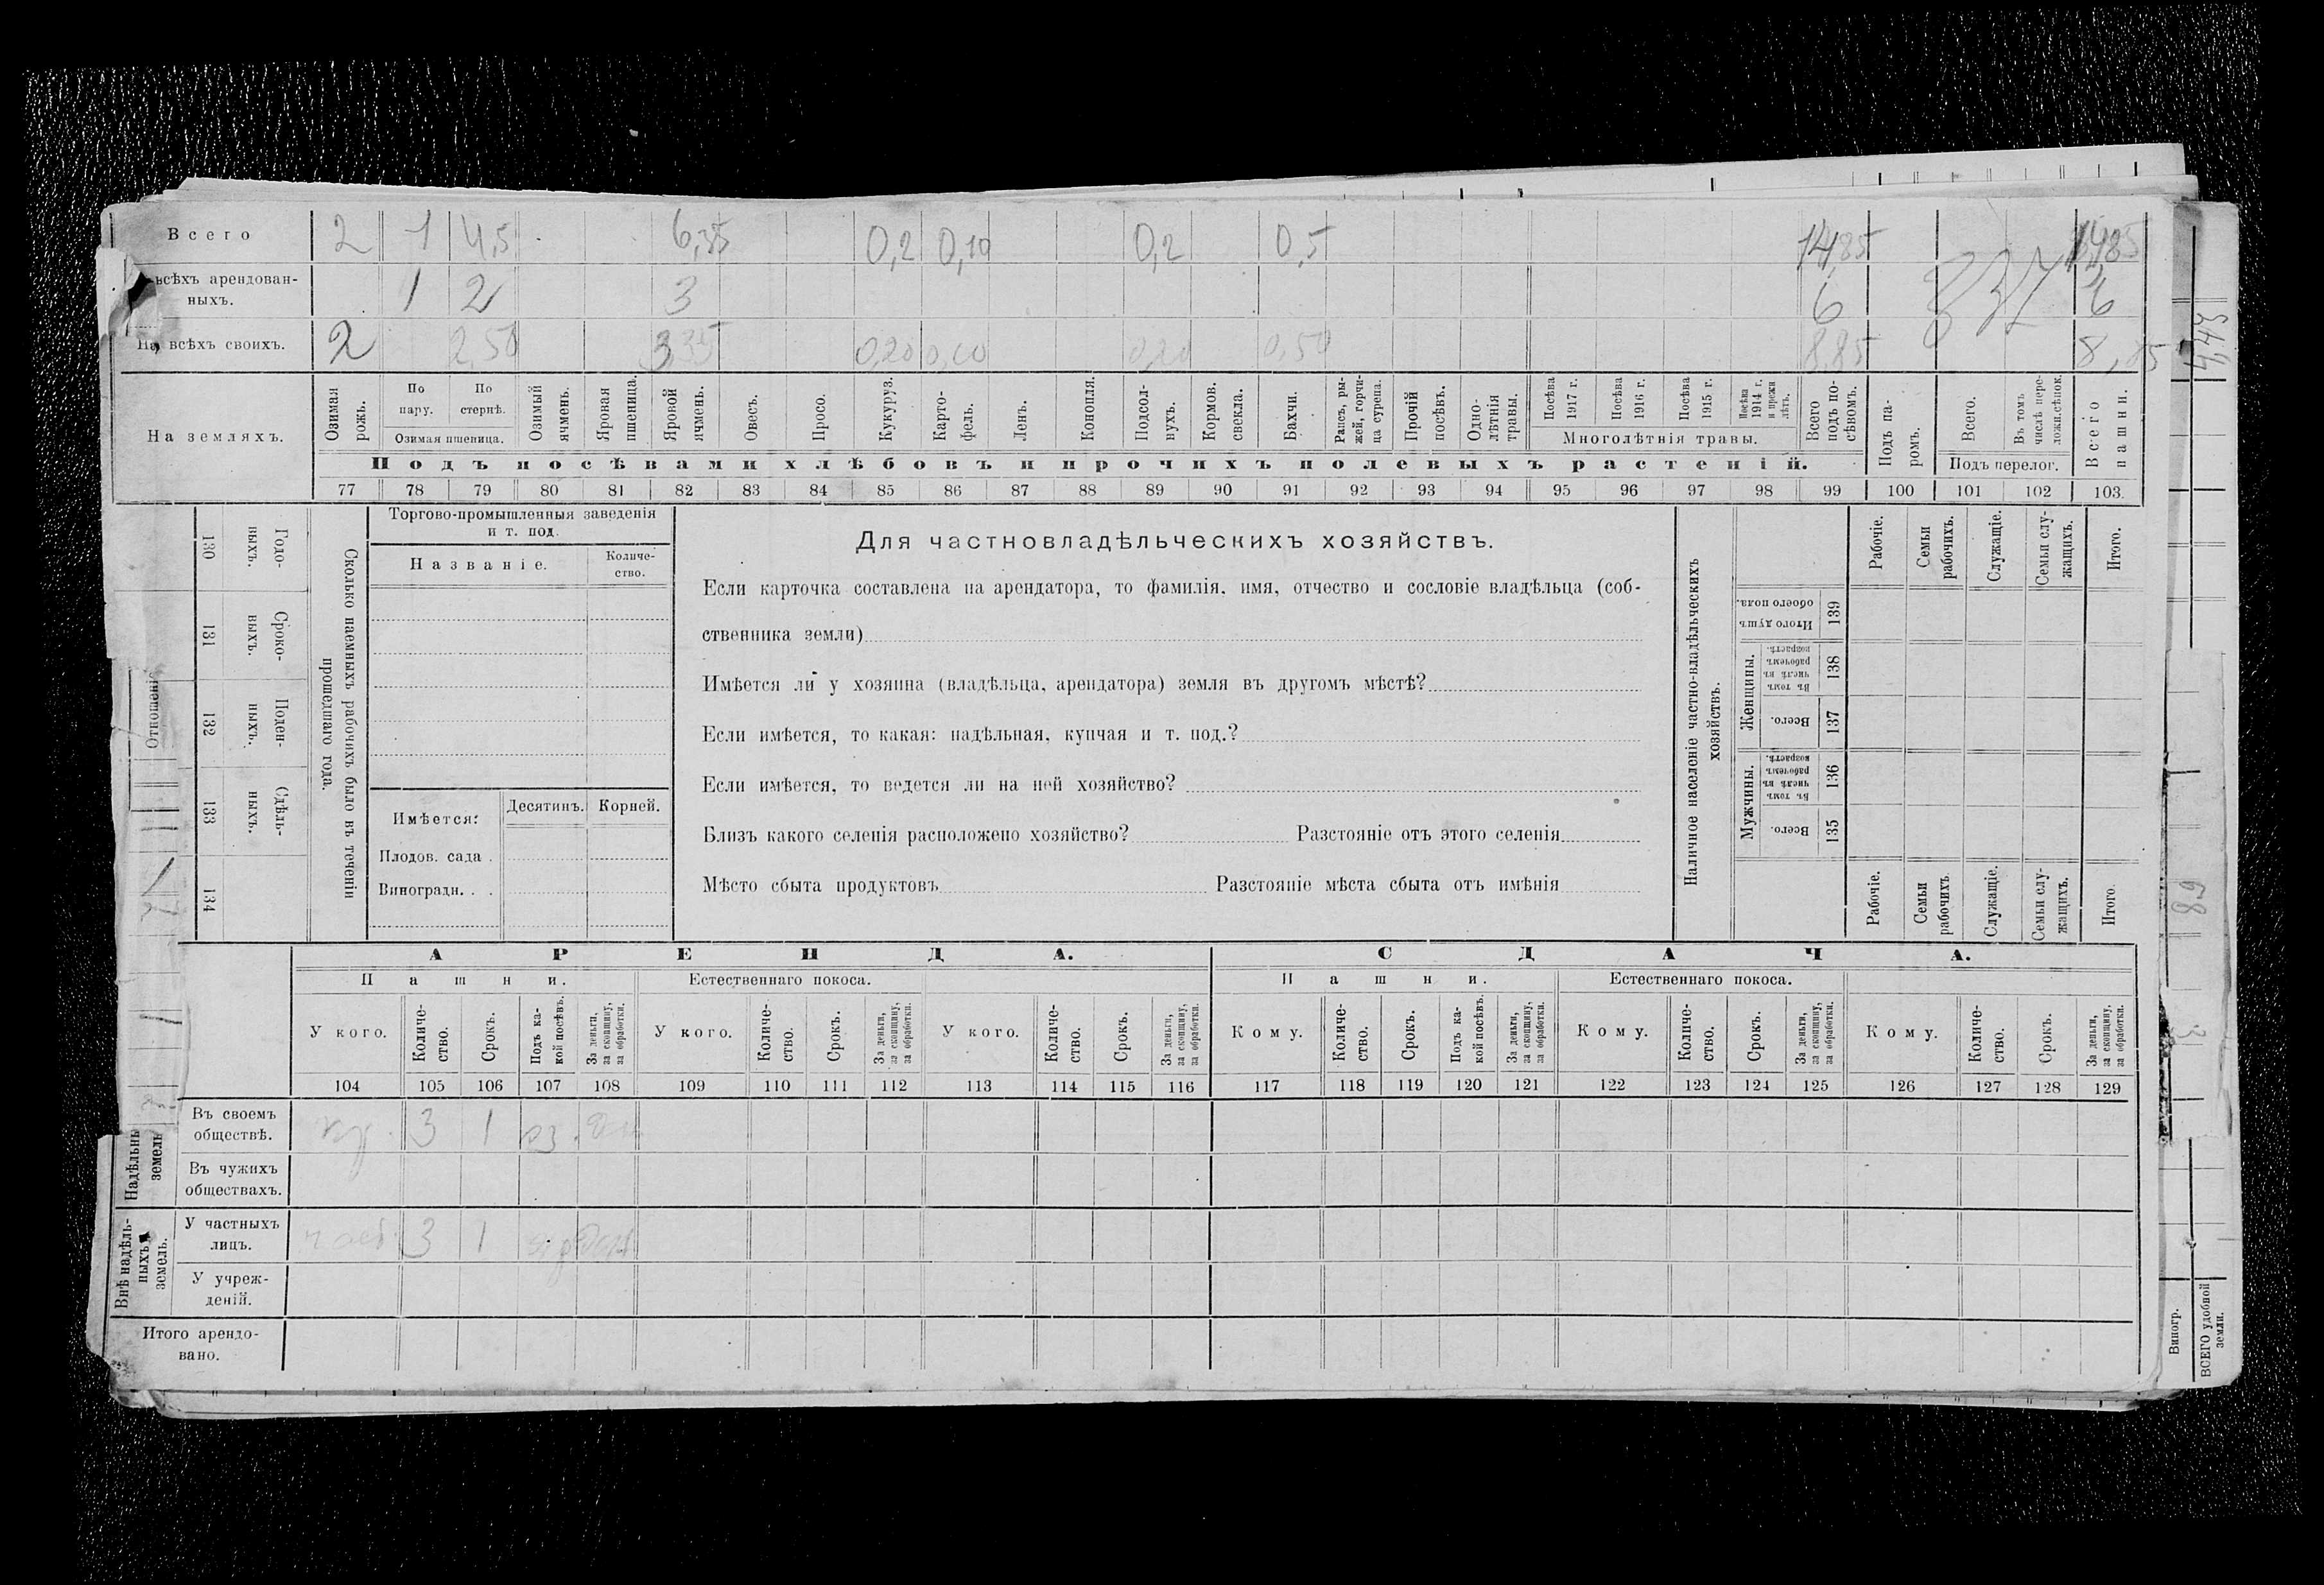 Всего 2 1 4,5 6,35 0,2 0,10 0,2 0,5 14,85 14,85
всѣхъ арендован-
ныхъ. 1 2 3 6 837 6
На всѣхъ своихъ. 2 2,50 3 35 0,20 0,10 0,20 0,50 8,85 8,85
На земляхъ.
Озимая рожь.
По пару.
По стернѣ.
Озимая пшеница.
Озимый ячмень.
Яровая пшеница.
Яровой ячмень.
Овесъ.
Просо.
Кукуруз.
Карто-
фель.
Ленъ.
Конопля.
Подсол-
нухъ.
Кормов. свекла.
Бахчи.
Рапсъ, ры-
жей, горчи-
ца сурепа.
Прочій посѣвъ.
Одно-
лѣтнія травы.
Посѣва 1917 г.
Посѣва 1916 г.
Посѣва 1915 г.
Посѣва 1914 г. и прежн лѣтъ.
Многолѣтнія травы.
Всего подъ по-
сѣвомъ.
Подъ посѣвами хлѣбовъ и прочихъ полевыхъ растеній.
Подъ па-
ромъ.
Всего.
Въ томъ числѣ пере-
ложн.сѣнок.
Подъ перелог.
Всего пашни.
77 78 79 80 81 82 83 84 85 86 87 88 89 90 91 92 93 94 95 96 97 98 99 100 101 102 103.
Отношеніе
130 131 132 133 134
Годо-
выхъ.
Сроко-
выхъ.
Поден-
ныхъ.
Сдѣль-
ныхъ.
Сколько наемныхъ рабочихъ было въ теченіи
прошедшаго года.
Торгово-промышленныя заведенія
и т. под.
Названіе.
Количе-
ство.
Имѣется:
Десятинъ. Корней.
Плодов. сада .
Виноградн. . .
Для частновладѣльческихъ хозяйствъ.
Если карточка составлена на арендатора, то фамилія, имя, отчество и сословіе владѣльца (соб-
ственника земли)
Имѣется ли у хозяина (владѣльца, арендатора) земля въ другомъ мѣстѣ?
Если имѣется, то какая: надѣльная, купчая и т. под.?
Если имѣется, то ведется ли на ней хозяйство?
Близъ какого селенія расположено хозяйство? Разстояніе отъ этого селенія
Мѣсто сбыта продуктовъ Разстояніе мѣста сбыта отъ имѣнія
Наличное населеніе частно-владѣльческихъ
хозяйствъ.
Рабочіе.
Семьи рабочихъ.
Служащіе.
Семьи слу-
жащихъ.
Итого.
Итого душъ обоего пола. 139
Женщины.
Въ томъ числѣ въ рабочемъ возрастѣ. 138
Всего. 137
Мужчины.
Въ томъ числѣ въ рабочемъ возрастѣ. 136
Всего. 135
Рабочіе.
Семьи рабочихъ
Служащіе.
Семьи слу-
жащихъ.
Итого.
АРЕНДА. СДАЧА.
Пашни. Естественнаго покоса. Пашни. Естественнаго покоса.
У кого.
Количе-
ство.
Срокъ.
Подъ ка-
кой посѣвъ.
За деньги, за скопщину, за обработки.
У кого.
Количе-
ство.
Срокъ.
За деньги, за скопщину, за обработки.
У кого.
Количе-
ство.
Срокъ.
За деньги, за скопщину, за обработки.
Кому.
Количе-
ство.
Срокъ.
Подъ ка-
кой посѣвъ.
За деньги, за скопщину, за обработки.
Кому.
Количе-
ство.
Срокъ.
За деньги, за скопщину, за обработки.
Кому.
Количе-
ство.
Срокъ.
За деньги, за скопщину, за обработки.
104 105 106 107 108 109 110 111 112 113 114 115 116 117 118 119 120 121 122 123 124 125 126 127 128 129
Надѣльн земель
Въ своемъ
обществѣ. 3 1 оз.
Въ чужихъ
обществахъ.
Внѣ надѣль-
ныхъ земель.
У частныхъ
лицъ. част 3 1
У учреж-
деній.
Итого арендо-
вано.
4,43
89
3
Виногр.
ВСЕГО удобной
земли.